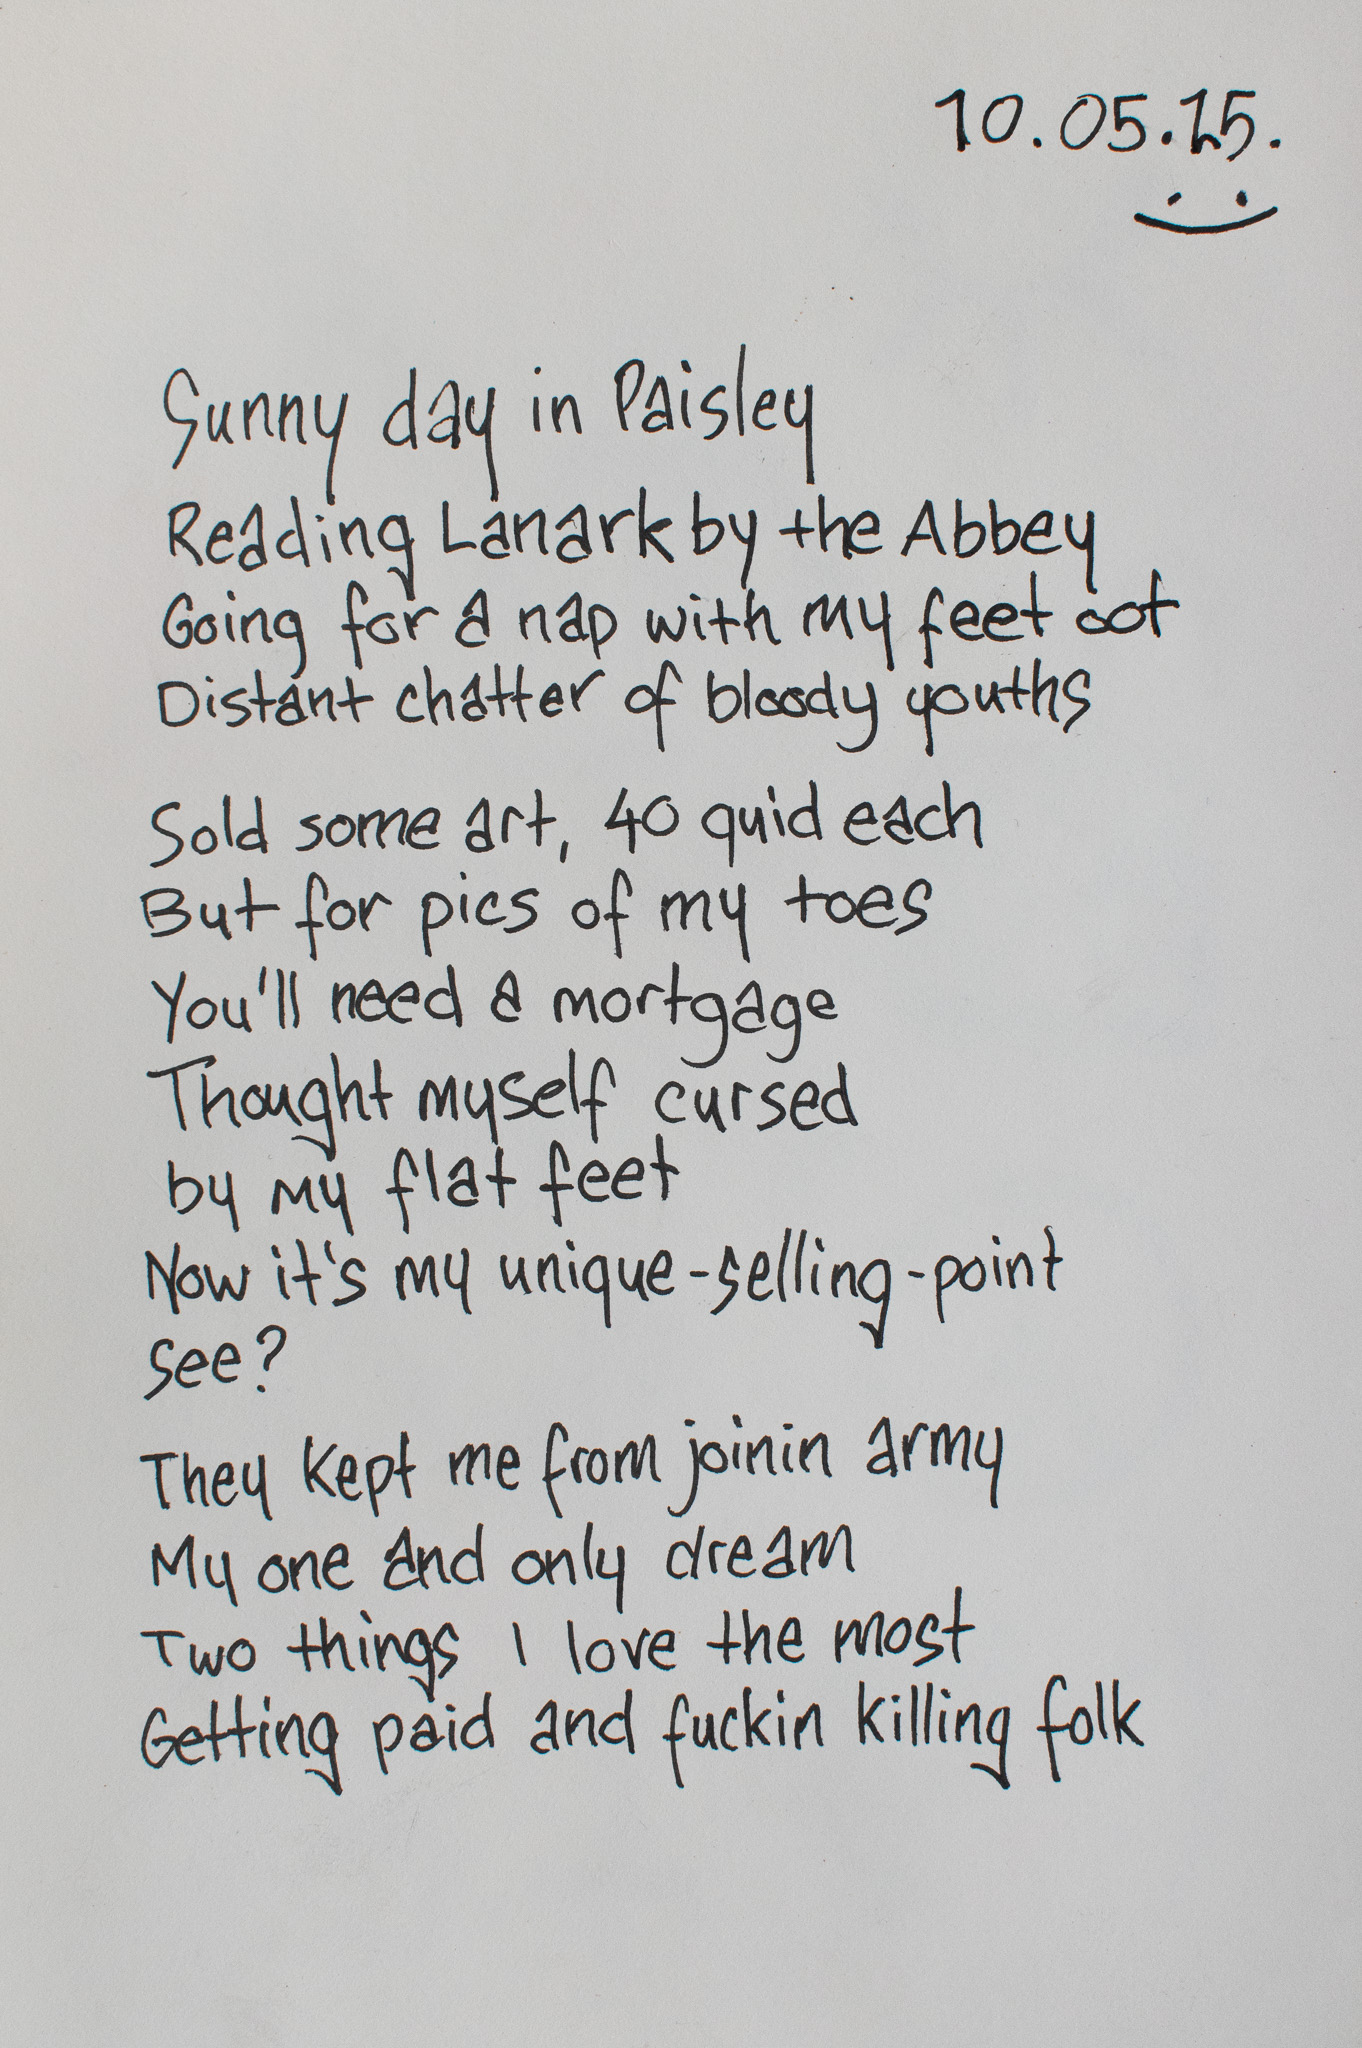 10.05.25.
Sunny day in Paisley
Reading Lanark by the Abbey
Going for a nap with my feet oot
Distant chatter of bloody youths
Sold some art, 40 quid each
But for pics of my toes
You'll need a mortgage
Thought myself cursed
by my flat feet
Now it's my unique-selling-point
see?
They kept me from joinin army
My one and only dream
Two things I love the most
Getting paid and fuckin killing folk